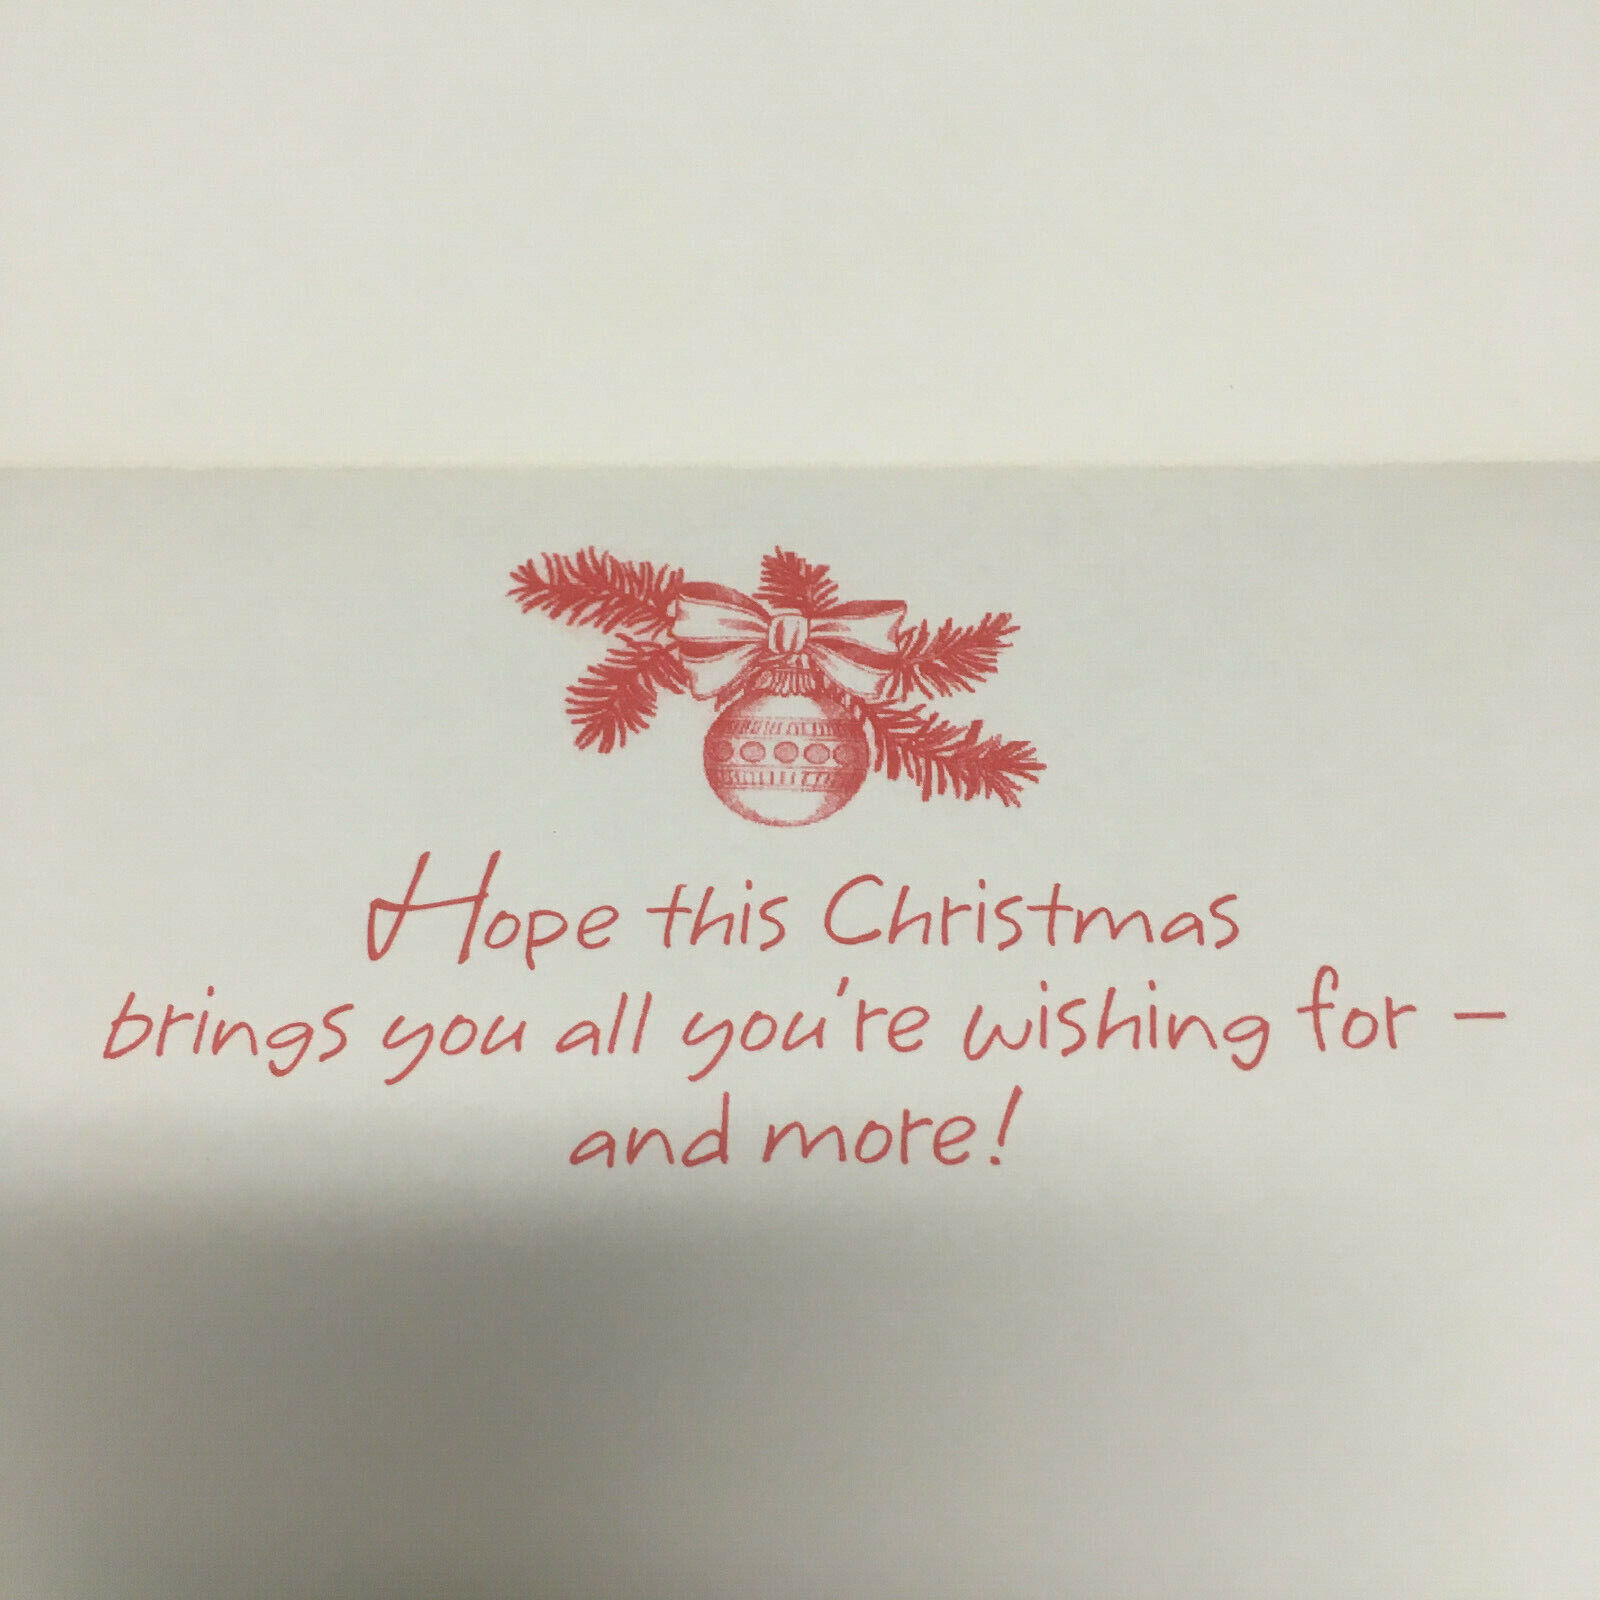 Hope this Christmas
brings you all you're wishing for –
and more!